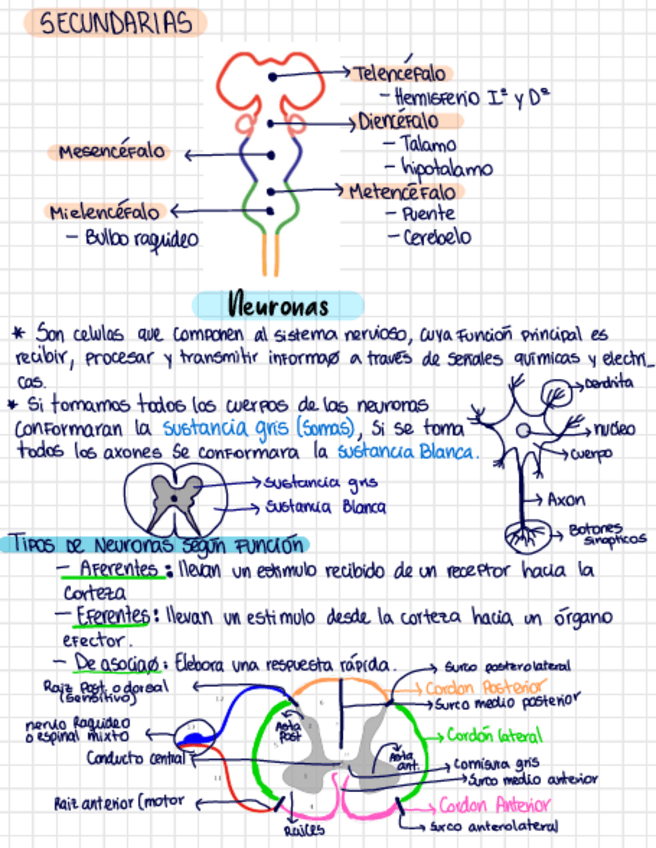 SECUNDARIAS
Telencéfalo
- Hemisferio Iº y Dº
Diencéfalo
- Talamo
- hipotalamo
Mesencéfalo
Metencéfalo
- Puente
- Cerebelo
Mielencéfalo
- Bulbo raquideo
Neuronas
* Son celulas que componen al sistema nervioso, cuya función principal es
recibir, procesar y transmitir informaø a través de señales químicas y electri_
cas.
* Si tomamos todos los cuerpos de las neuronas
conformaran la sustancia gris (somas), si se toma
todos los axones se conformara la sustancia Blanca.
dendrita
nucleo
cuerpo
Axon
Botones
sinapticos
sustancia gris
sustancia Blanca
Tipos de Neuronas según función
- Aferentes: llevan un estimulo recibido de un receptor hacia la
corteza
- Eferentes: llevan un estimulo desde la corteza hacia un órgano
efector.
- De asociaø: Elebora una respuesta rápida.
surco posterolateral
Raiz Post. o dorsal
(sensitivo)
Cordon Posterior
surco medio posterior
nervio Raquideo
o espinal mixto
Asta
Post
Cordón lateral
Conducto central
Asta
ant.
comisura gris
surco medio anterior
Raiz anterior (motor
Cordon Anterior
Raices
surco anterolateral
12
11